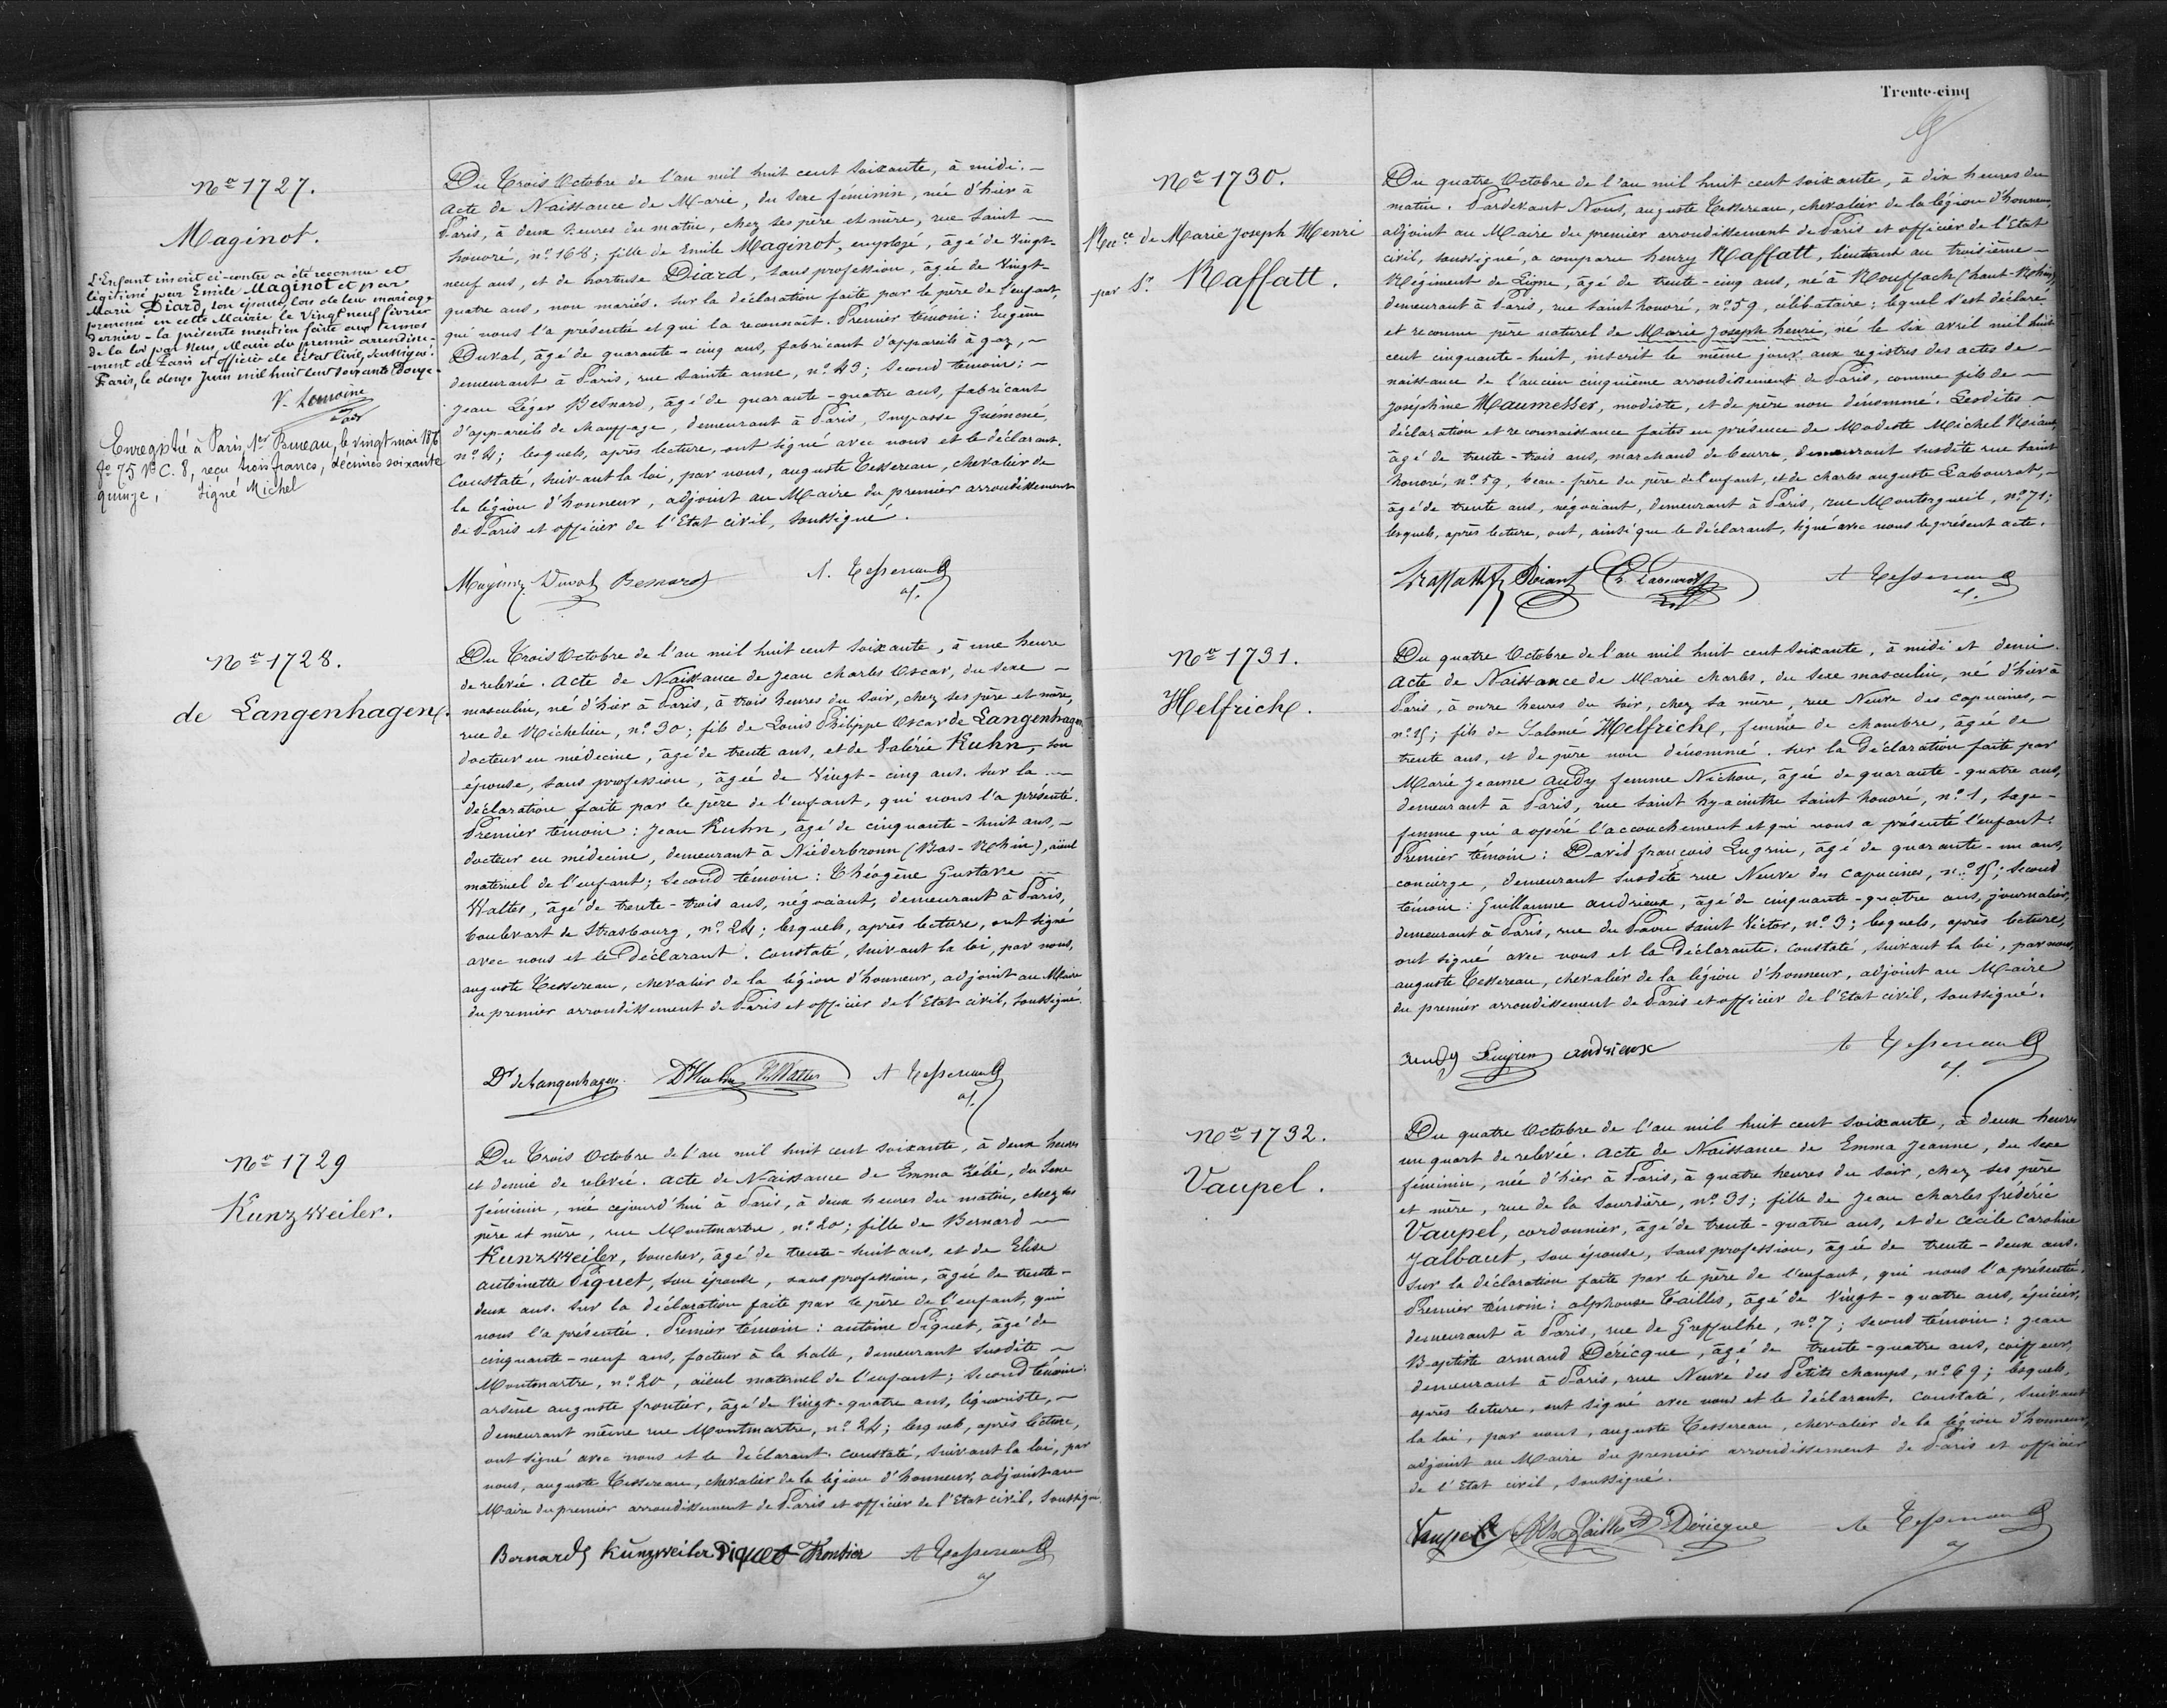 Nº 1727.
Maginot.
L'Enfant inscrit ci-contre a été reconnu et
légitimé par Emile Maginot et par
Marie Diard, son épouse, lors de leur mariage
prononcé en cette Mairie le Vingt neuf février
dernier - la présente mention faite aux termes
de la loi par Nous, Maire du premier arrondisse-
-ment de Paris et officier de l'état Civil, soussigné.
Paris, le douze Juin mil huit cent soixante Douze.
Enregistré à Paris, 1er Bureau, le vingt mai 187
fº 75 Vº C. 8, reçu trois francs, décimes soixante
quinze, signé Michel
Du Trois Octobre de l'an mil huit cent soixante, à midi. -
Acte de Naissance de Marie, du sexe féminin, née d'hier à
Paris, à deux heures du matin, chez ses père et mère, rue Saint -
honoré, nº 168; fille de Emile Maginot, employé, âgé de vingt-
neuf ans, et de hortense Diard, sans profession, âgée de vingt-
quatre ans, non mariés. Sur la déclaration faite par le père de l'enfant,
qui nous l'a présentée et qui la reconnait. Premier témoin: Eugène
Duval, âgé de quarante-cinq ans, fabricant d'appareils à gaz, -
demeurant à Paris, rue Sainte anne, nº 43; second témoin: -
Jean Léger Besnard, âgé de quarante-quatre ans, fabricant
d'appareils de chauffage, demeurant à Paris, Impasse Guémené,
nº 4; lesquels, après lecture, ont signé avec nous et le déclarant.
Constaté, suivant la loi, par nous, auguste Tessereau, chevalier de
la légion d'honneur, adjoint au Maire du premier arrondissement
de Paris et officier de l'Etat civil, soussigné.
Maginot Duval Besnard A. Tessereau
Nº 1728.
de Langenhagen.
Du Trois Octobre de l'an mil huit cent soixante, à une heure
de relevée. Acte de Naissance de Jean charles Oscar, du sexe -
masculin, né d'hier à Paris, à trois heures du soir, chez ses père et mère,
rue de Richelieu, nº 30; fils de Louis Philippe Oscar de Langenhagen,
docteur en médecine, âgé de trente ans, et de Valérie Kuhn, son
épouse, sans profession, âgée de Vingt-cinq ans. Sur la -
déclaration faite par le père de l'enfant, qui nous l'a présenté.
Premier témoin: Jean Kuhn, âgé de cinquante-huit ans, -
docteur en médecine, demeurant à Niederbronn (Bas-Rhin), aïeul
maternel de l'enfant; Second témoin: Théogène Gustave -
Walter, âgé de trente-trois ans, négociant, demeurant à Paris,
boulevart de Strasbourg, nº 24; lesquels, après lecture, ont signé
avec nous et le Déclarant. Constaté, suivant la loi, par nous,
auguste Tessereau, chevalier de la légion d'honneur, adjoint au Maire
du premier arrondissement de Paris et officier de l'Etat civil, soussigné.
Dr de Langenhagen Dr Kuhn A Tessereau
Nº 1729
Kunzweiler.
Du Trois Octobre de l'an mil huit cent soixante, à deux heures
et demie de relevée. Acte de Naissance de Emma Zélie, du sexe
féminin, née cejourd'hui à Paris, à deux heures du matin, chez ses
père et mère, rue Montmartre, nº 20; fille de Bernard -
Kunzweiler, boucher, âgé de trente-huit ans, et de Elise
antoinette Piquet, son épouse, sans profession, âgée de trente-
deux ans. Sur la déclaration faite par le père de l'enfant, qui
nous l'a présentée. Premier témoin: antoine Piquet, âgé de
cinquante-neuf ans, facteur à la halle, demeurant susdite -
Montmartre, nº 20, aïeul maternel de l'enfant; Second témoin:
arsène auguste frontier, âgé de Vingt-quatre ans, liquoriste, -
demeurant même rue Montmartre, nº 24; lesquels, après lecture,
ont signé avec nous et le déclarant. Constaté, suivant la loi, par
nous, auguste Tessereau, chevalier de la légion d'honneur, adjoint au
Maire du premier arrondissement de Paris et officier de l'Etat civil, soussigné.
Bernard Kunzweiler Piquet Frontier A Tessereau
Trente-cinq
Nº 1730.
Recce de Marie Joseph Henri
par Sr. Raffatt.
Du quatre Octobre de l'an mil huit cent soixante, à dix heures du
matin. Pardevant Nous, auguste Tessereau, chevalier de la légion d'honneur,
adjoint au Maire du premier arrondissement de Paris et officier de l'Etat
civil, soussigné, a comparu henry Raffatt, lieutenant au troisième -
Régiment de Ligne, âgé de trente-cinq ans, né à Rouffach (haut-Rhin),
demeurant à Paris, rue Saint honoré, nº 59, célibataire; lequel s'est déclaré
et reconnu père naturel de Marie Joseph henri, né le six avril mil huit
cent cinquante-huit, inscrit le même jour aux registres des actes de -
naissance de l'ancien cinquième arrondissement de Paris, comme fils de -
Joséphine Haumesser, modiste, et de père non dénommé. Lesdites -
déclaration et reconnaissance faites en présence de Modeste Michel Riant,
âgé de trente-trois ans, marchand de beurre, demeurant susdite rue Saint
honoré, nº 59, beau-frère du père de l'enfant, et de charles auguste Labourot, -
âgé de trente ans, négociant, demeurant à Paris, rue Montorgueil, nº 71;
lesquels, après lecture, ont, ainsi que le déclarant, signé avec nous le présent acte.
Hraffatt Riant Ch. Labourot A Tessereau
Nº 1731.
Helfrich.
Du quatre Octobre de l'an mil huit cent soixante, à midi et demi.
Acte de Naissance de Marie charles, du sexe masculin, né d'hier à
Paris, à onze heures du soir, chez sa mère, rue Neuve des capucines, -
nº 15; fils de Salomé Helfrich, femme de chambre, âgée de
trente ans, et de père non dénommé. Sur la déclaration faite par
Marie Jeanne Audy femme Nichou, âgée de quarante-quatre ans,
demeurant à Paris, rue saint hyacinthe saint honoré, nº 1, sage-
femme qui a opéré l'accouchement et qui nous a présenté l'enfant.
Premier témoin: David françois Lugrin, âgé de quarante-un ans,
concierge, demeurant susdite rue Neuve des capucines, nº 15; second
témoin: Guillaume andrieux, âgé de cinquante-quatre ans, journalier,
demeurant à Paris, rue du Pavé saint Victor, nº 3; lesquels, après lecture,
ont signé avec nous et la Déclarante. Constaté, suivant la loi, par nous,
auguste Tessereau, chevalier de la légion d'honneur, adjoint au Maire
du premier arrondissement de Paris et officier de l'Etat civil, soussigné.
Lugrin andrieux A Tessereau
Nº 1732.
Vaupel.
Du quatre Octobre de l'an mil huit cent soixante, à deux heures
un quart de relevée. Acte de Naissance de Emma Jeanne, du sexe
féminin, née d'hier à Paris, à quatre heures du soir, chez ses père
et mère, rue de la Sourdière, nº 31; fille de Jean charles frédéric
Vaupel, cordonnier, âgé de trente-quatre ans, et de cécile caroline
Jalbaut, son épouse, sans profession, âgée de trente-deux ans.
Sur la déclaration faite par le père de l'enfant, qui nous l'a présentée.
Premier témoin: alphonse Taillis, âgé de Vingt-quatre ans, épicier,
demeurant à Paris, rue de Greffulhe, nº 7; second témoin: Jean
Baptiste armand Déricque, âgé de trente-quatre ans, coiffeur,
demeurant à Paris, rue Neuve des Petits champs, nº 69; lesquels,
après lecture, ont signé avec nous et le déclarant. Constaté, suivant
la loi, par nous, auguste Tessereau, chevalier de la légion d'honneur,
adjoint au Maire du premier arrondissement de Paris et officier
de l'Etat civil, soussigné.
Vaupel Déricque A Tessereau